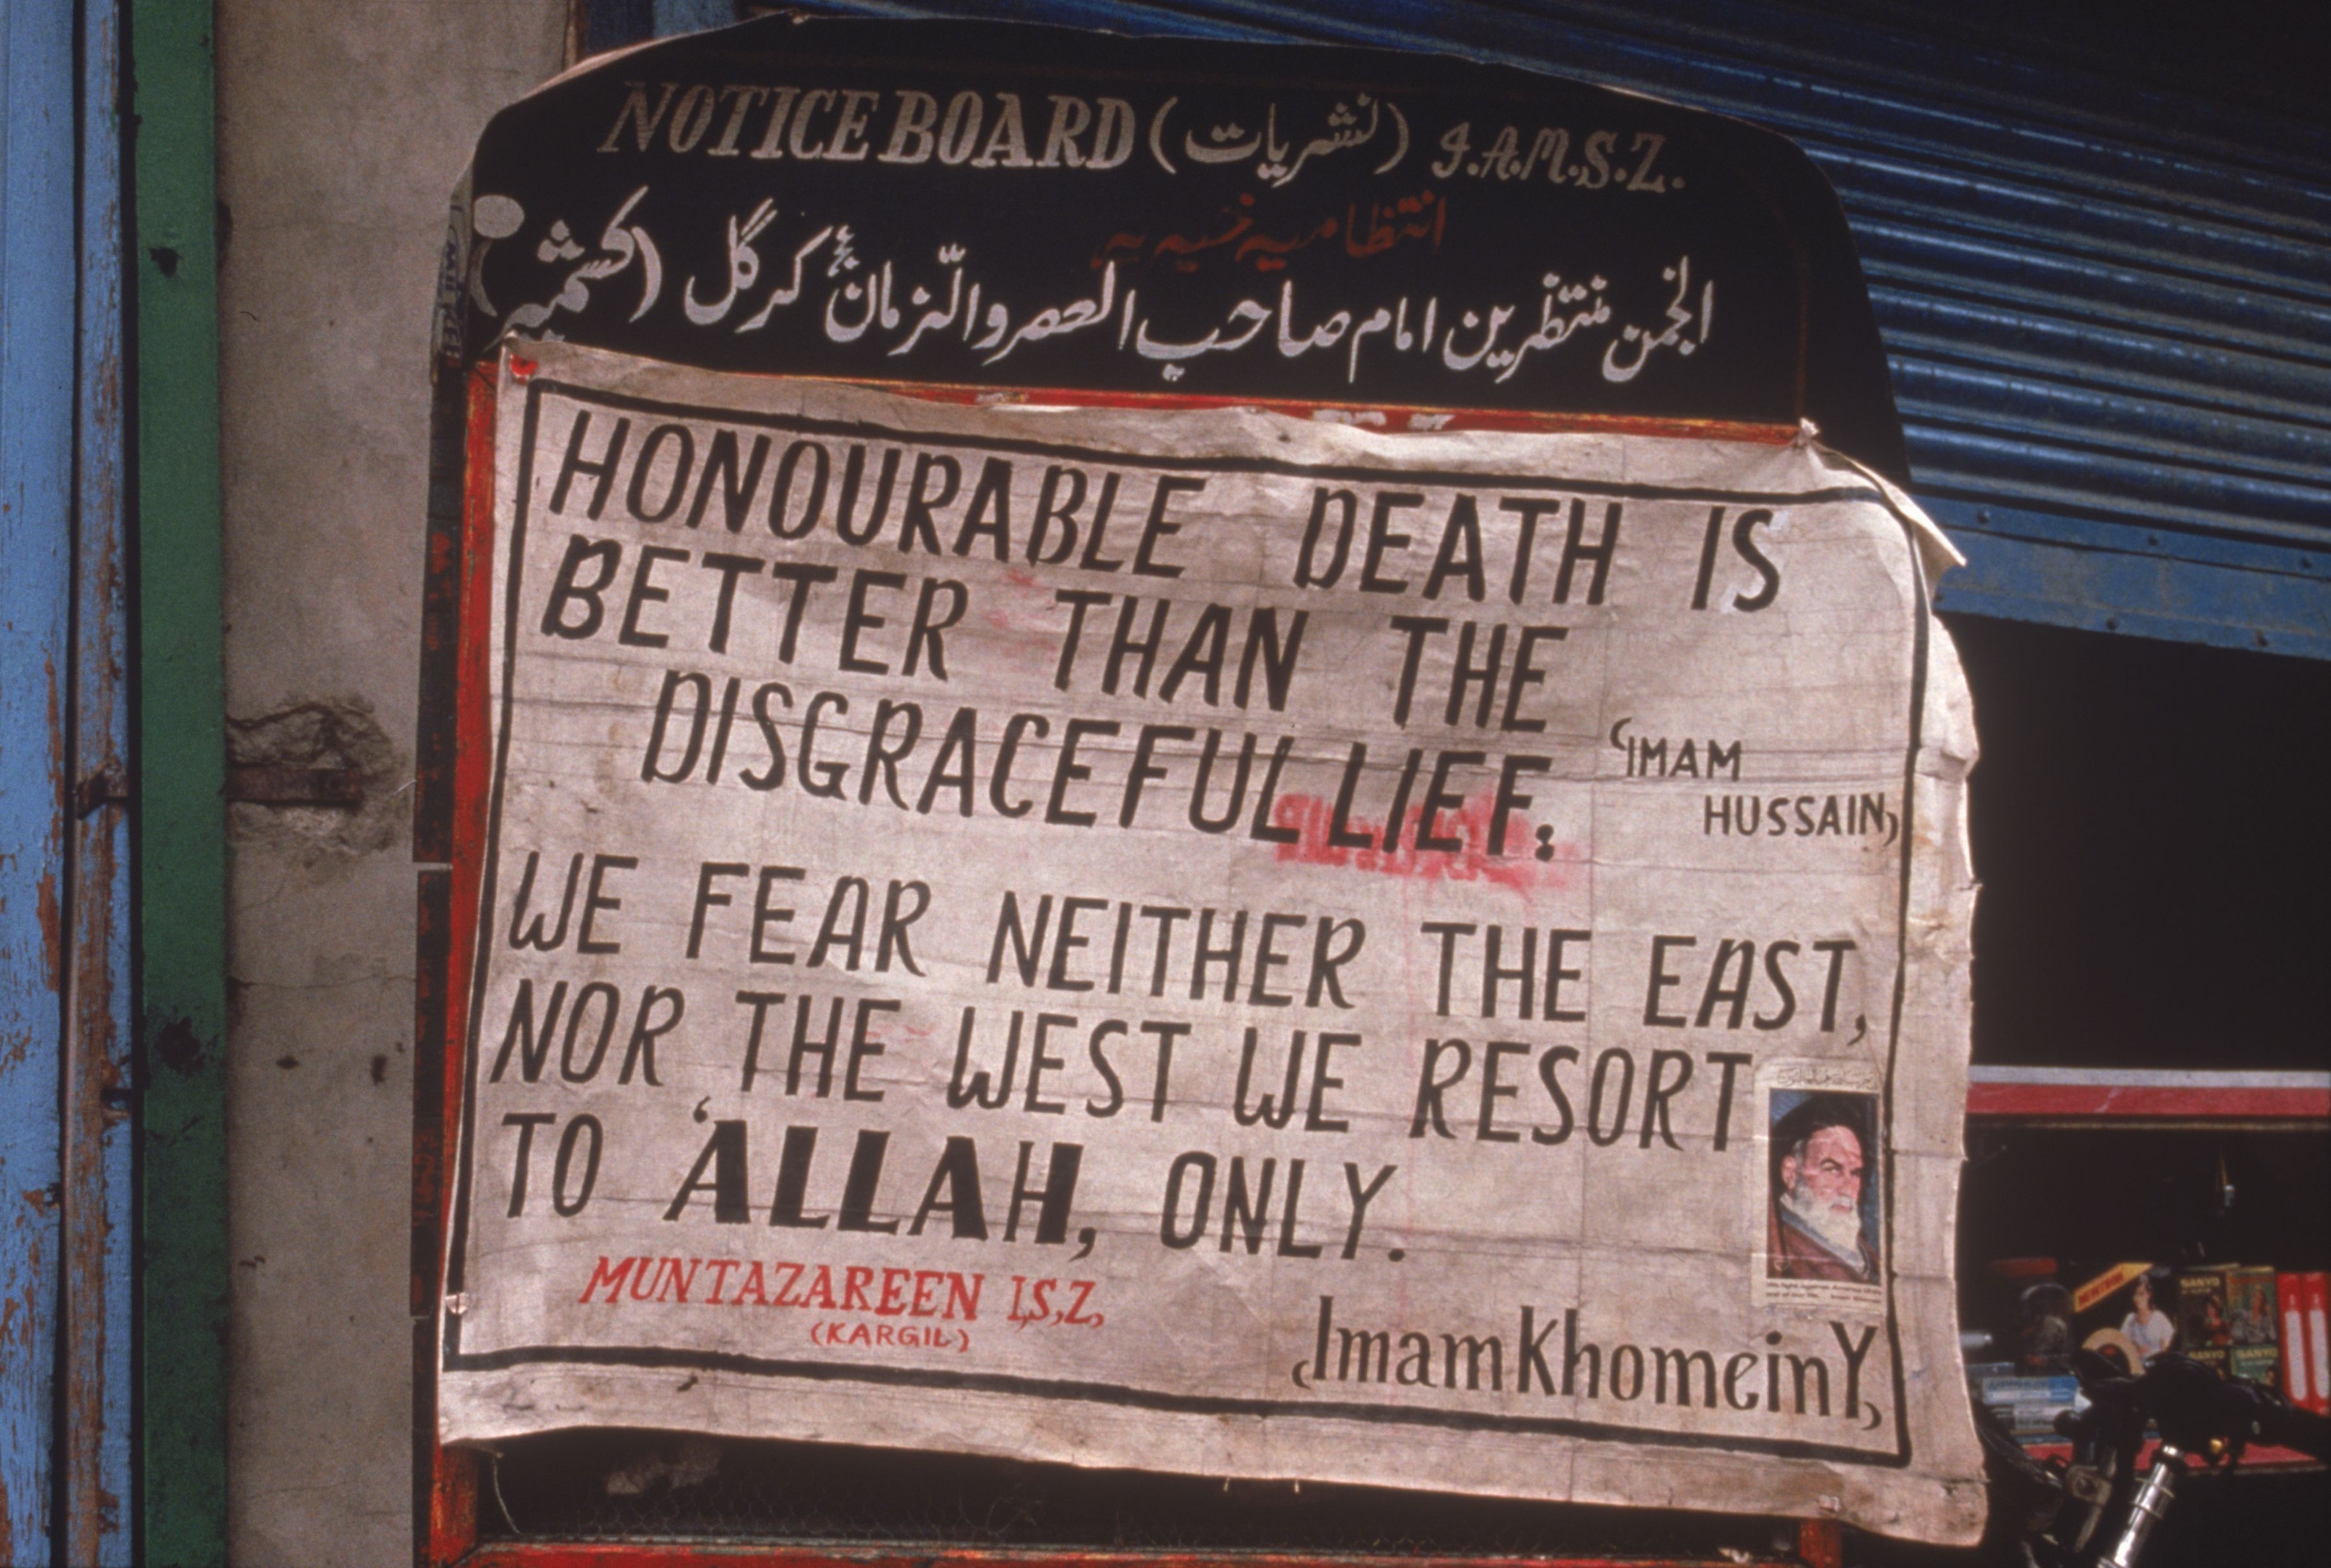 NOTICE BOARD (نشریات) I.A.M.S.Z.
انتظامیہ
انجمن منتظرین امام صاحب العصر والزمانؑ کرگل (کشمیر)
HONOURABLE DEATH IS
BETTER THAN THE
DISGRACEFUL LIEF:
‘IMAM
HUSSAIN,
WE FEAR NEITHER THE EAST,
NOR THE WEST WE RESORT
TO ‘ALLAH, ONLY.
MUNTAZAREEN I,S,Z,
(KARGIL)
Imam KhomeinY,
SANYO
SANYO
SANYO